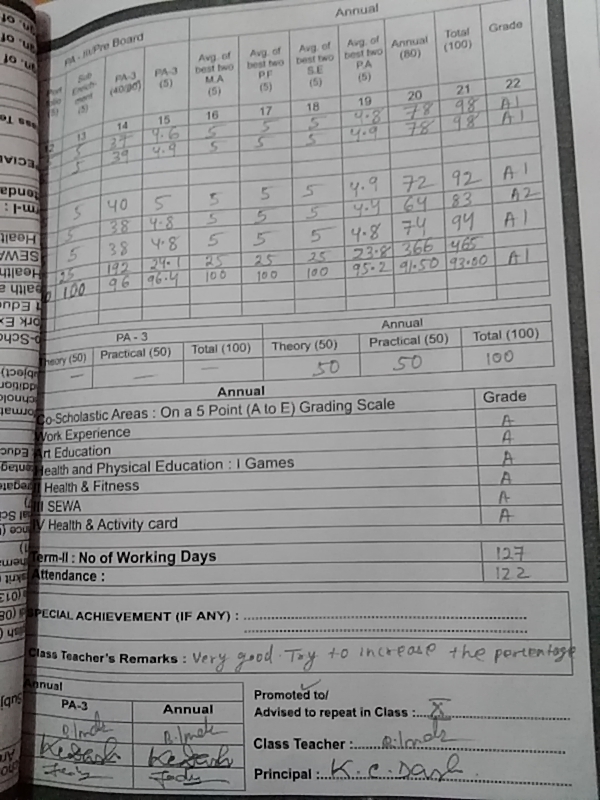 Annual
PA - III/Pre Board
Sub Enrich- ment (5) PA-3 (40/80) PA-3 (5) Avg. of best two M.A (5) Avg. of best two P.F (5) Avg. of best two S.E (5) Avg. of best two P.A (5) Annual (80) Total (100) Grade
13 14 15 16 17 18 19 20 21 22
5 37 4.6 5 5 5 4.8 78 98 A1
5 39 4.9 5 5 5 4.9 78 98 A1
5 40 5 5 5 5 4.9 72 92 A1
5 38 4.8 5 5 5 4.4 64 83 A2
5 38 4.8 5 5 5 4.8 74 94 A1
25 192 24.1 25 25 25 23.8 366 465
100 96 96.4 100 100 100 95.2 91.50 93.00 A1
PA - 3 Annual
Theory (50) Practical (50) Total (100) Theory (50) Practical (50) Total (100)
— — — 50 50 100
Annual
Co-Scholastic Areas : On a 5 Point (A to E) Grading Scale Grade
Work Experience A
Art Education A
Health and Physical Education : I Games A
II Health & Fitness A
III SEWA A
IV Health & Activity card A
Term-II : No of Working Days 127
Attendance : 122
SPECIAL ACHIEVEMENT (IF ANY) :
Class Teacher's Remarks : Very good. Try to increase the percentage
Annual
PA-3 Annual
Promoted to/
Advised to repeat in Class : X
Class Teacher :
Principal : K. C. Dash